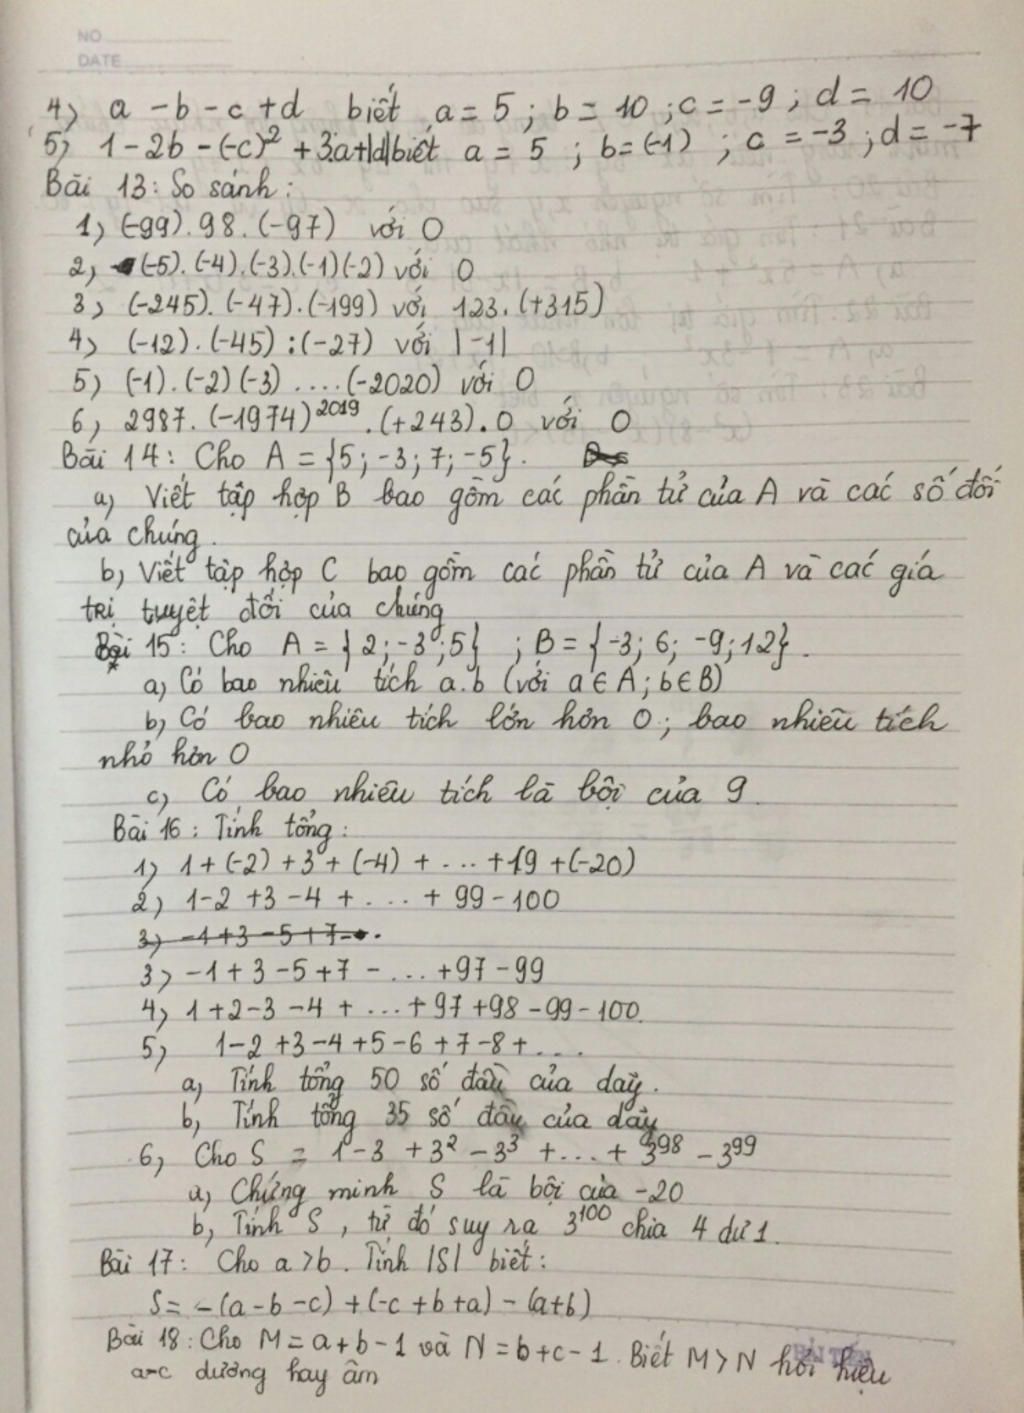 NO
DATE
4) a - b - c + d biết a = 5 ; b = 10 ; c = -9 ; d = 10
5) 1 - 2b - (-c)² + 3a + |d| biết a = 5 ; b = (-1) ; c = -3 ; d = -7
Bài 13: So sánh:
1) (-99) . 98 . (-97) với 0
2) (-5) . (-4) . (-3) . (-1) (-2) với 0
3) (-245) . (-47) . (-199) với 123 . (+315)
4) (-12) . (-45) : (-27) với |-1|
5) (-1) . (-2) (-3) .... (-2020) với 0
6) 2987 . (-1974)²⁰¹⁹ . (+243) . 0 với 0
Bài 14: Cho A = {5; -3; 7; -5}.
a) Viết tập hợp B bao gồm các phần tử của A và các số đối
của chúng.
b) Viết tập hợp C bao gồm các phần tử của A và các giá
trị tuyệt đối của chúng
Bài 15: Cho A = {2; -3; 5} ; B = {-3; 6; -9; 12}.
a) Có bao nhiêu tích a.b (với a ∈ A; b ∈ B)
b) Có bao nhiêu tích lớn hơn 0; bao nhiêu tích
nhỏ hơn 0
c) Có bao nhiêu tích là bội của 9.
Bài 16: Tính tổng:
1) 1 + (-2) + 3 + (-4) + ... + 19 + (-20)
2) 1 - 2 + 3 - 4 + .... + 99 - 100
3) -1 + 3 - 5 + 7 - .
3) -1 + 3 - 5 + 7 - ... + 97 - 99
4) 1 + 2 - 3 - 4 + ... + 97 + 98 - 99 - 100.
5) 1 - 2 + 3 - 4 + 5 - 6 + 7 - 8 + ....
a) Tính tổng 50 số đầu của dãy.
b) Tính tổng 35 số đầu của dãy
6) Cho S = 1 - 3 + 3² - 3³ + ... + 3⁹⁸ - 3⁹⁹
a) Chứng minh S là bội của -20
b) Tính S, từ đó suy ra 3¹⁰⁰ chia 4 dư 1.
Bài 17: Cho a > b. Tính |S| biết:
S = -(a - b - c) + (-c + b + a) - (a + b)
Bài 18: Cho M = a + b - 1 và N = b + c - 1. Biết M > N hỏi hiệu
a-c dương hay âm